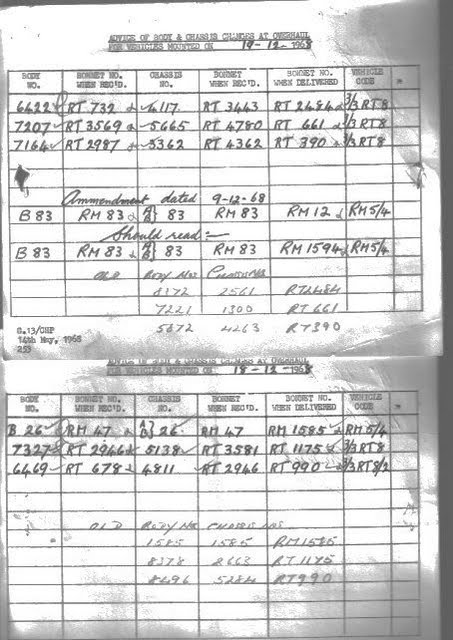 ADVICE OF BODY & CHASSIS CHANGES AT OVERHAUL
FOR VEHICLES MOUNTED ON 19-12-1968
BODY NO. BONNET NO. WHEN REC'D. CHASSIS NO. BONNET WHEN REC'D. BONNET NO. WHEN DELIVERED VEHICLE CODE
6422 RT 732 6117 RT 3443 RT 2484 3/3RT8
7207 RT 3569 5665 RT 4780 RT 661 3/3RT8
7164 RT 2987 5362 RT 4362 RT 390 3/3RT8
Ammendment dated 9-12-68
B 83 RM 83 A/B} 83 RM 83 RM 12 RM5/4
Should read:-
B 83 RM 83 A/B} 83 RM 83 RM 1594 RM5/4
OLD BODY Nos CHASSIS Nos
8172 2561 RT2484
7221 1300 RT 661
5672 4263 RT390
G.13/CHP
14th May, 1968
253
ADVICE OF BODY & CHASSIS CHANGES AT OVERHAUL
FOR VEHICLES MOUNTED ON 18-12-1968
BODY NO. BONNET NO. WHEN REC'D. CHASSIS NO. BONNET WHEN REC'D. BONNET NO. WHEN DELIVERED VEHICLE CODE
B 26 RM 47 A/B} 26 RM 47 RM 1585 RM5/4
7327 RT 2946 5138 RT 3581 RT 1175 3/3RT8
6469 RT 678 4811 RT 2946 RT 990 3/3RT8/2
OLD BODY Nos CHASSIS Nos
1585 1585 RM1585
8378 2663 RT1175
8496 5284 RT990